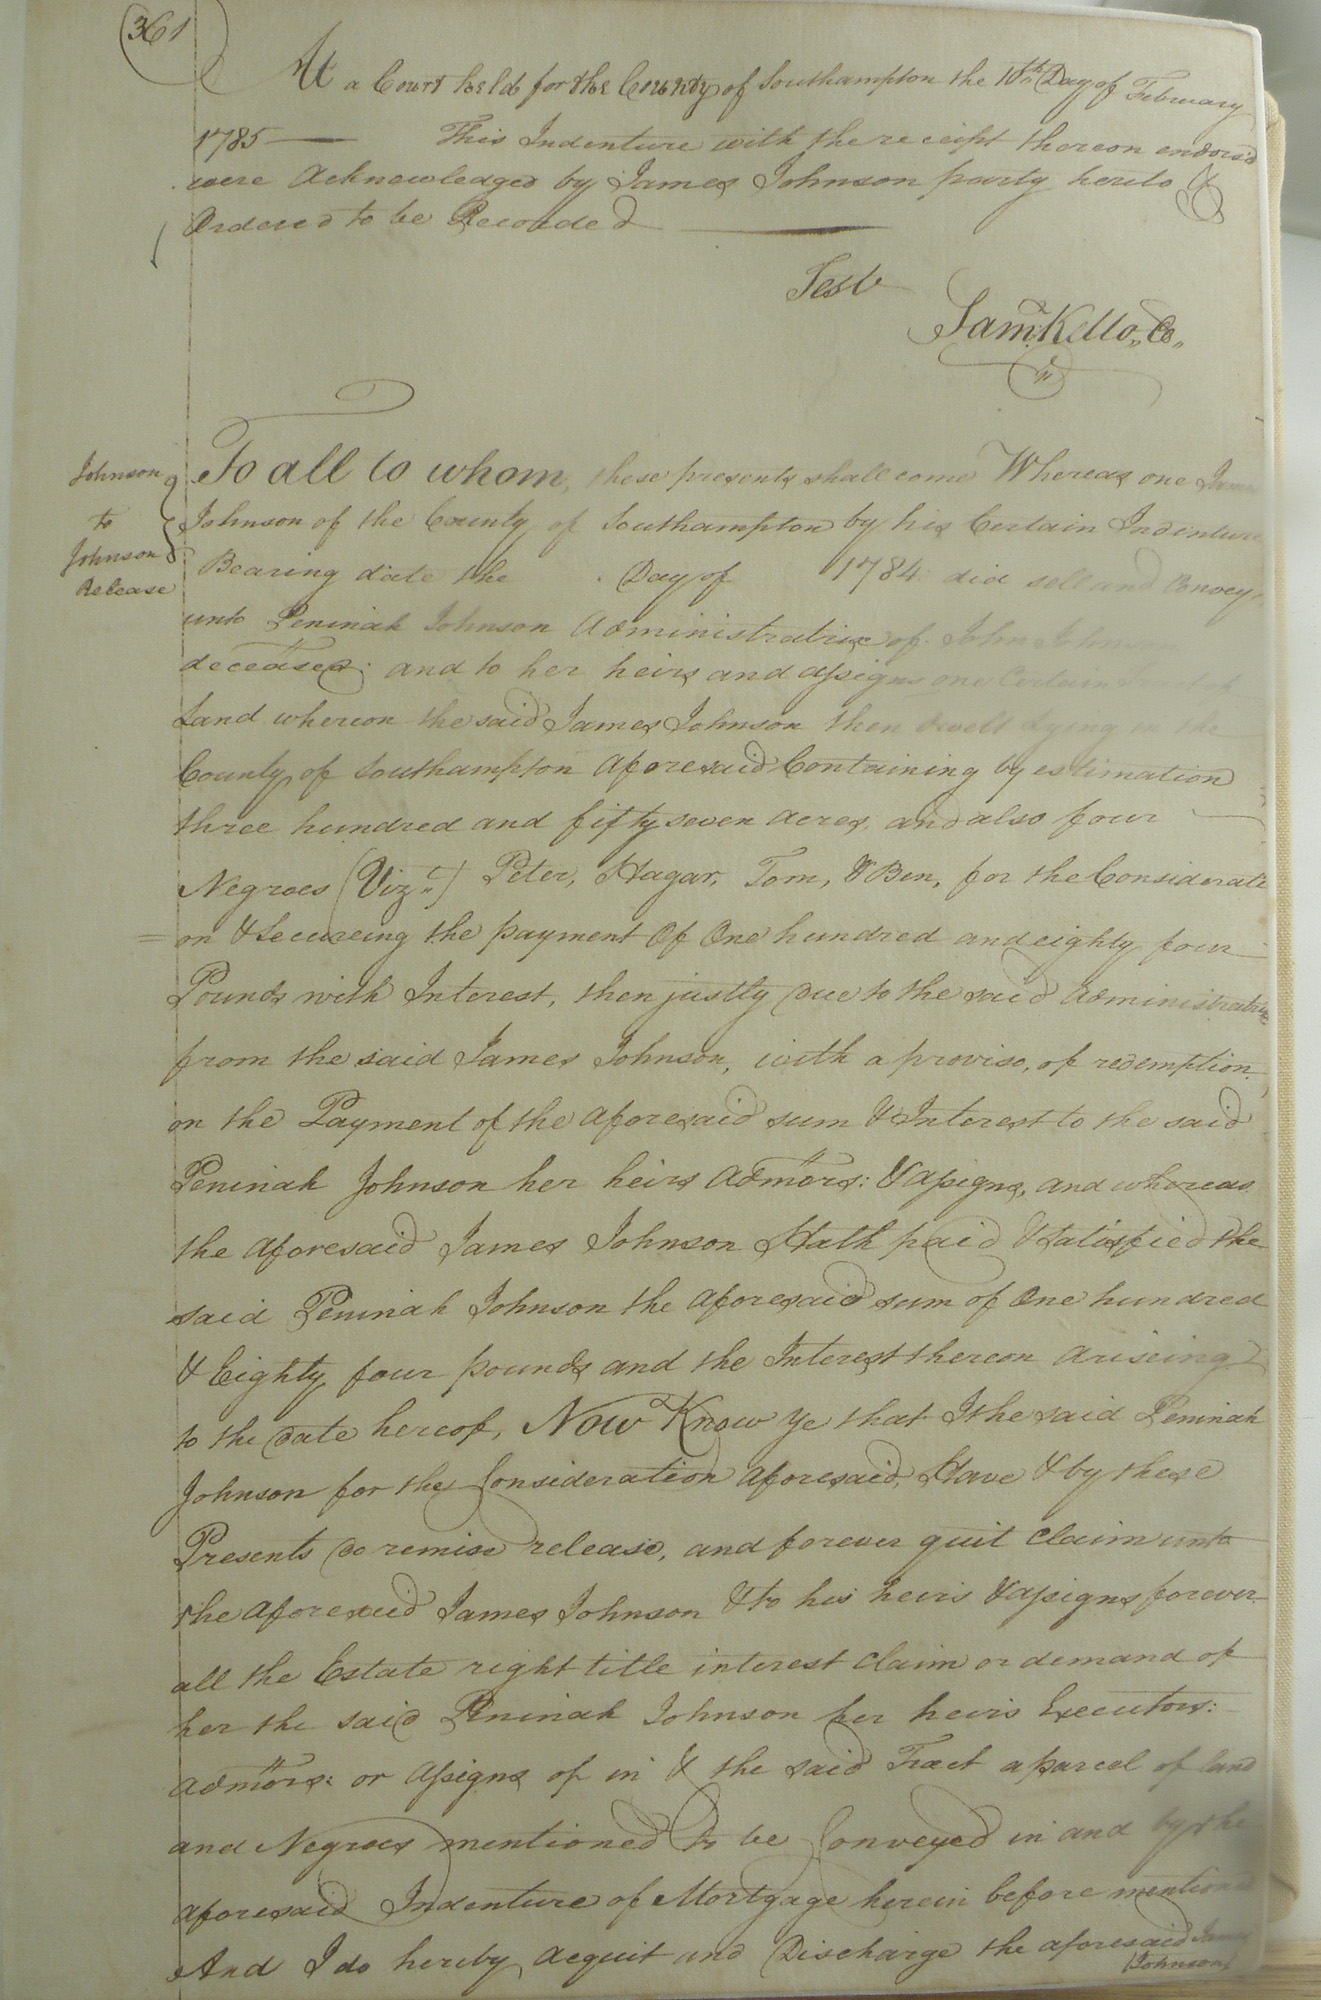 361
At a Court held for the County of Southampton the 10th Day of February
1785 — This Indenture with the receipt thereon endors'd
were Acknowledged by James Johnson party hereto &
Ordered to be Recorded
Test
Saml. Kello,, Cc,,
Johnson
to
Johnson
Release
To all to whom, these presents shall come Whereas one James
Johnson of the County of Southampton by his Certain Indenture
Bearing date the Day of 1784 did sell and Convey
unto Peninah Johnson Administratrix of John Johnson
deceased: and to her heirs and assigns one Certain
Land whereon the said James Johnson then dwelt lying in the
County of Southampton aforesaid Containing by estimation
three hundred and fifty seven acres, and also four
Negroes (Vizt.) Peter, Hagar, Tom, & Ben, for the Considerati
= on & Secureing the payment Of One hundred and eighty four
Pounds with Interest, then justly due to the said Administratrix
from the said James Johnson, with a proviso, of redemption
on the Payment of the aforesaid sum & Interest to the said
Peninah Johnson her heirs admors: & assigns, and whereas
the aforesaid James Johnson Hath paid & Satisfied the
said Peninah Johnson the aforesaid sum of One hundred
& Eighty four pounds and the Interest thereon ariseing
to the date hereof, Now Know Ye that I the said Peninah
Johnson for the Consideration aforesaid, Have & by these
Presents do remise release, and forever quit Claim unto
the aforesaid James Johnson & to his heirs & assigns forever
all the Estate right title interest claim or demand of
her the said Peninah Johnson her heirs Executors:
admors: or assigns of in & the said Tract a parcel of land
and Negroes mentioned to be Conveyed in and by the
aforesaid Indenture of Mortgage herein before mentioned
And I do hereby acquit and Discharge the aforesaid James
(Johnson)